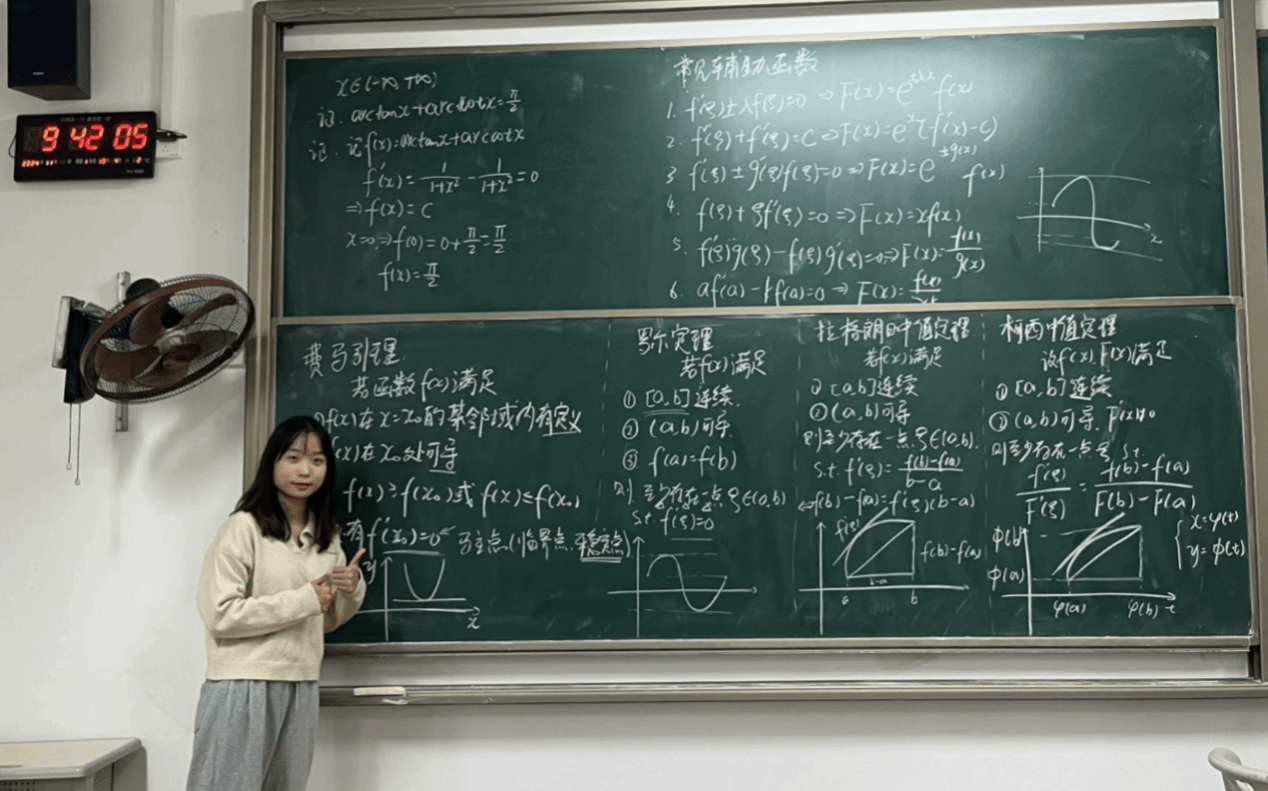 9 42 05
x∈(-∞, +∞)
证. arctanx+arccotx=π/2
证. 记f(x)=arctanx+arccotx
f'(x)=1/(1+x²) - 1/(1+x²)=0
⇒f(x)=C
x=0⇒f(0)=0+π/2=π/2
f(x)=π/2
常见辅助函数
1. f'(ξ)±λf(ξ)=0 ⇒F(x)=e^(±λx) f(x)
2. f''(ξ)+f'(ξ)=C⇒F(x)=e^x[f'(x)-C]
3 f'(ξ)±g'(ξ)f(ξ)=0⇒F(x)=e^(±g(x)) f(x)
4. f(ξ)+ξf'(ξ)=0⇒F(x)=xf(x)
5. f'(ξ)g(ξ)-f(ξ)g'(ξ)=0⇒F(x)=f(x)/g(x)
6. af'(a)-kf(a)=0⇒F(x)=f(x)
x
费马引理
若函数f(x)满足
f(x)在x=x₀的某邻域内有定义
f(x)在x₀处可导
f(x)≥f(x₀)或f(x)≤f(x₀)
有f'(x₀)=0 驻点(临界点,稳定点)
y
x
罗尔定理
若f(x)满足
① [a,b]连续.
② (a,b)可导.
③ f(a)=f(b)
则至少存在一点ξ∈(a,b)
s.t. f'(ξ)=0
拉格朗日中值定理
若f(x)满足
① [a,b]连续
② (a,b)可导
则至少存在一点ξ∈(a,b).
s.t. f'(ξ)=(f(b)-f(a))/(b-a)
⇔f(b)-f(a)=f'(ξ)(b-a)
f'(ξ)
f(b)-f(a)
b-a
a b
柯西中值定理
设f(x),F(x)满足
① [a,b]连续
② (a,b)可导. F'(x)≠0
则至少存在一点ξ s.t.
f'(ξ)/F'(ξ)=(f(b)-f(a))/(F(b)-F(a))
{x=φ(t)
y=ϕ(t)
ϕ(b)
ϕ(a)
φ(a) φ(b) t